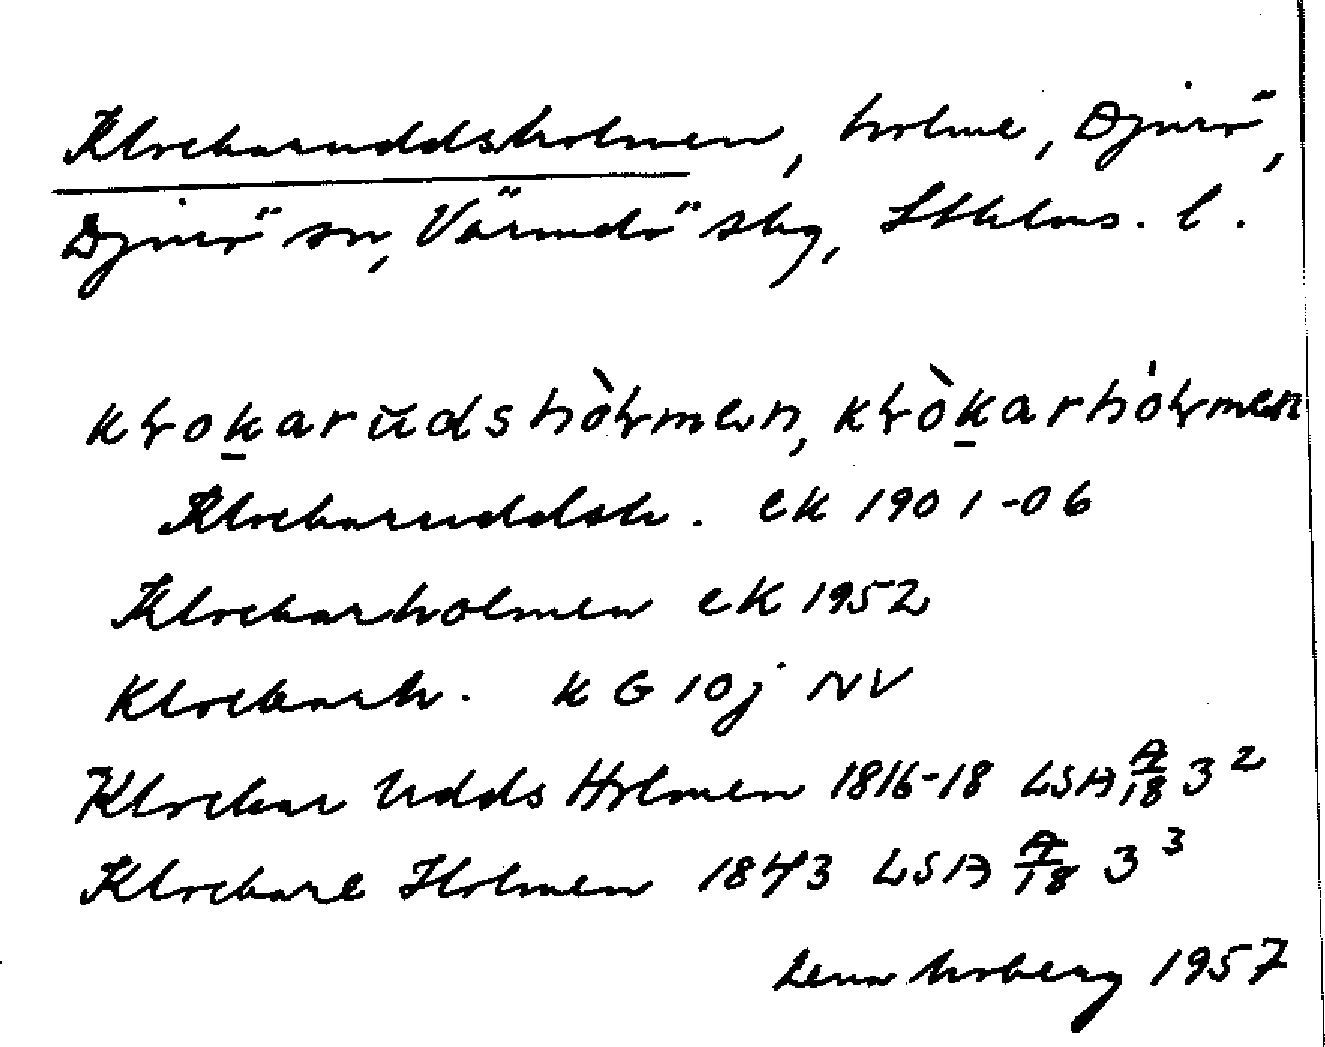 Klockaruddsholmen, holme, Djurö,
Djurö sn, Värmdö skg, Sthlms. l.
kłokarŭdshòłmen, kłòkarhòłmen
Klockaruddsh. ek 1901-06
Klockarholmen ek 1952
Klockarh. KG 10j NV
Klockar Udds Holmen 1816-18 LSA A/18 3²
Klockare Holmen 1843 LSA A/18 3³
Lena Moberg 1957